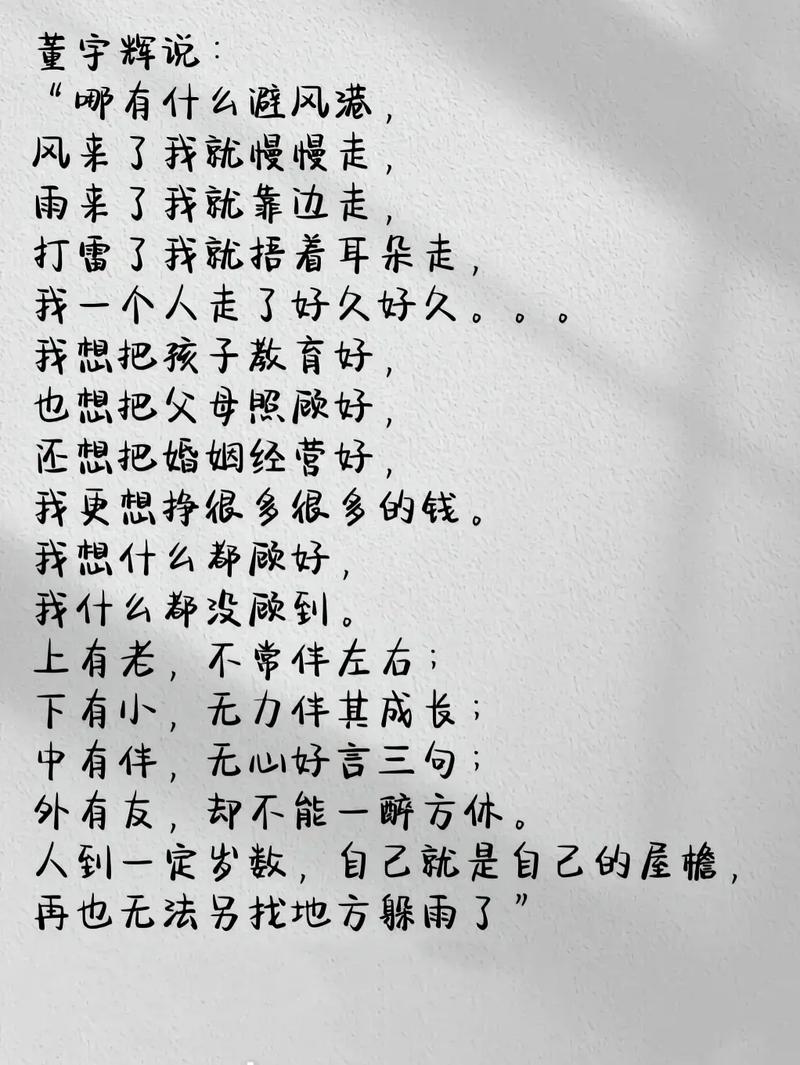 董宇辉说：
“哪有什么避风港，
风来了我就慢慢走，
雨来了我就靠边走，
打雷了我就捂着耳朵走，
我一个人走了好久好久。。。
我想把孩子教育好，
也想把父母照顾好，
还想把婚姻经营好，
我更想挣很多很多的钱。
我想什么都顾好，
我什么都没顾到。
上有老，不常伴左右；
下有小，无力伴其成长；
中有伴，无心好言三句；
外有友，却不能一醉方休。
人到一定岁数，自己就是自己的屋檐，
再也无法另找地方躲雨了”